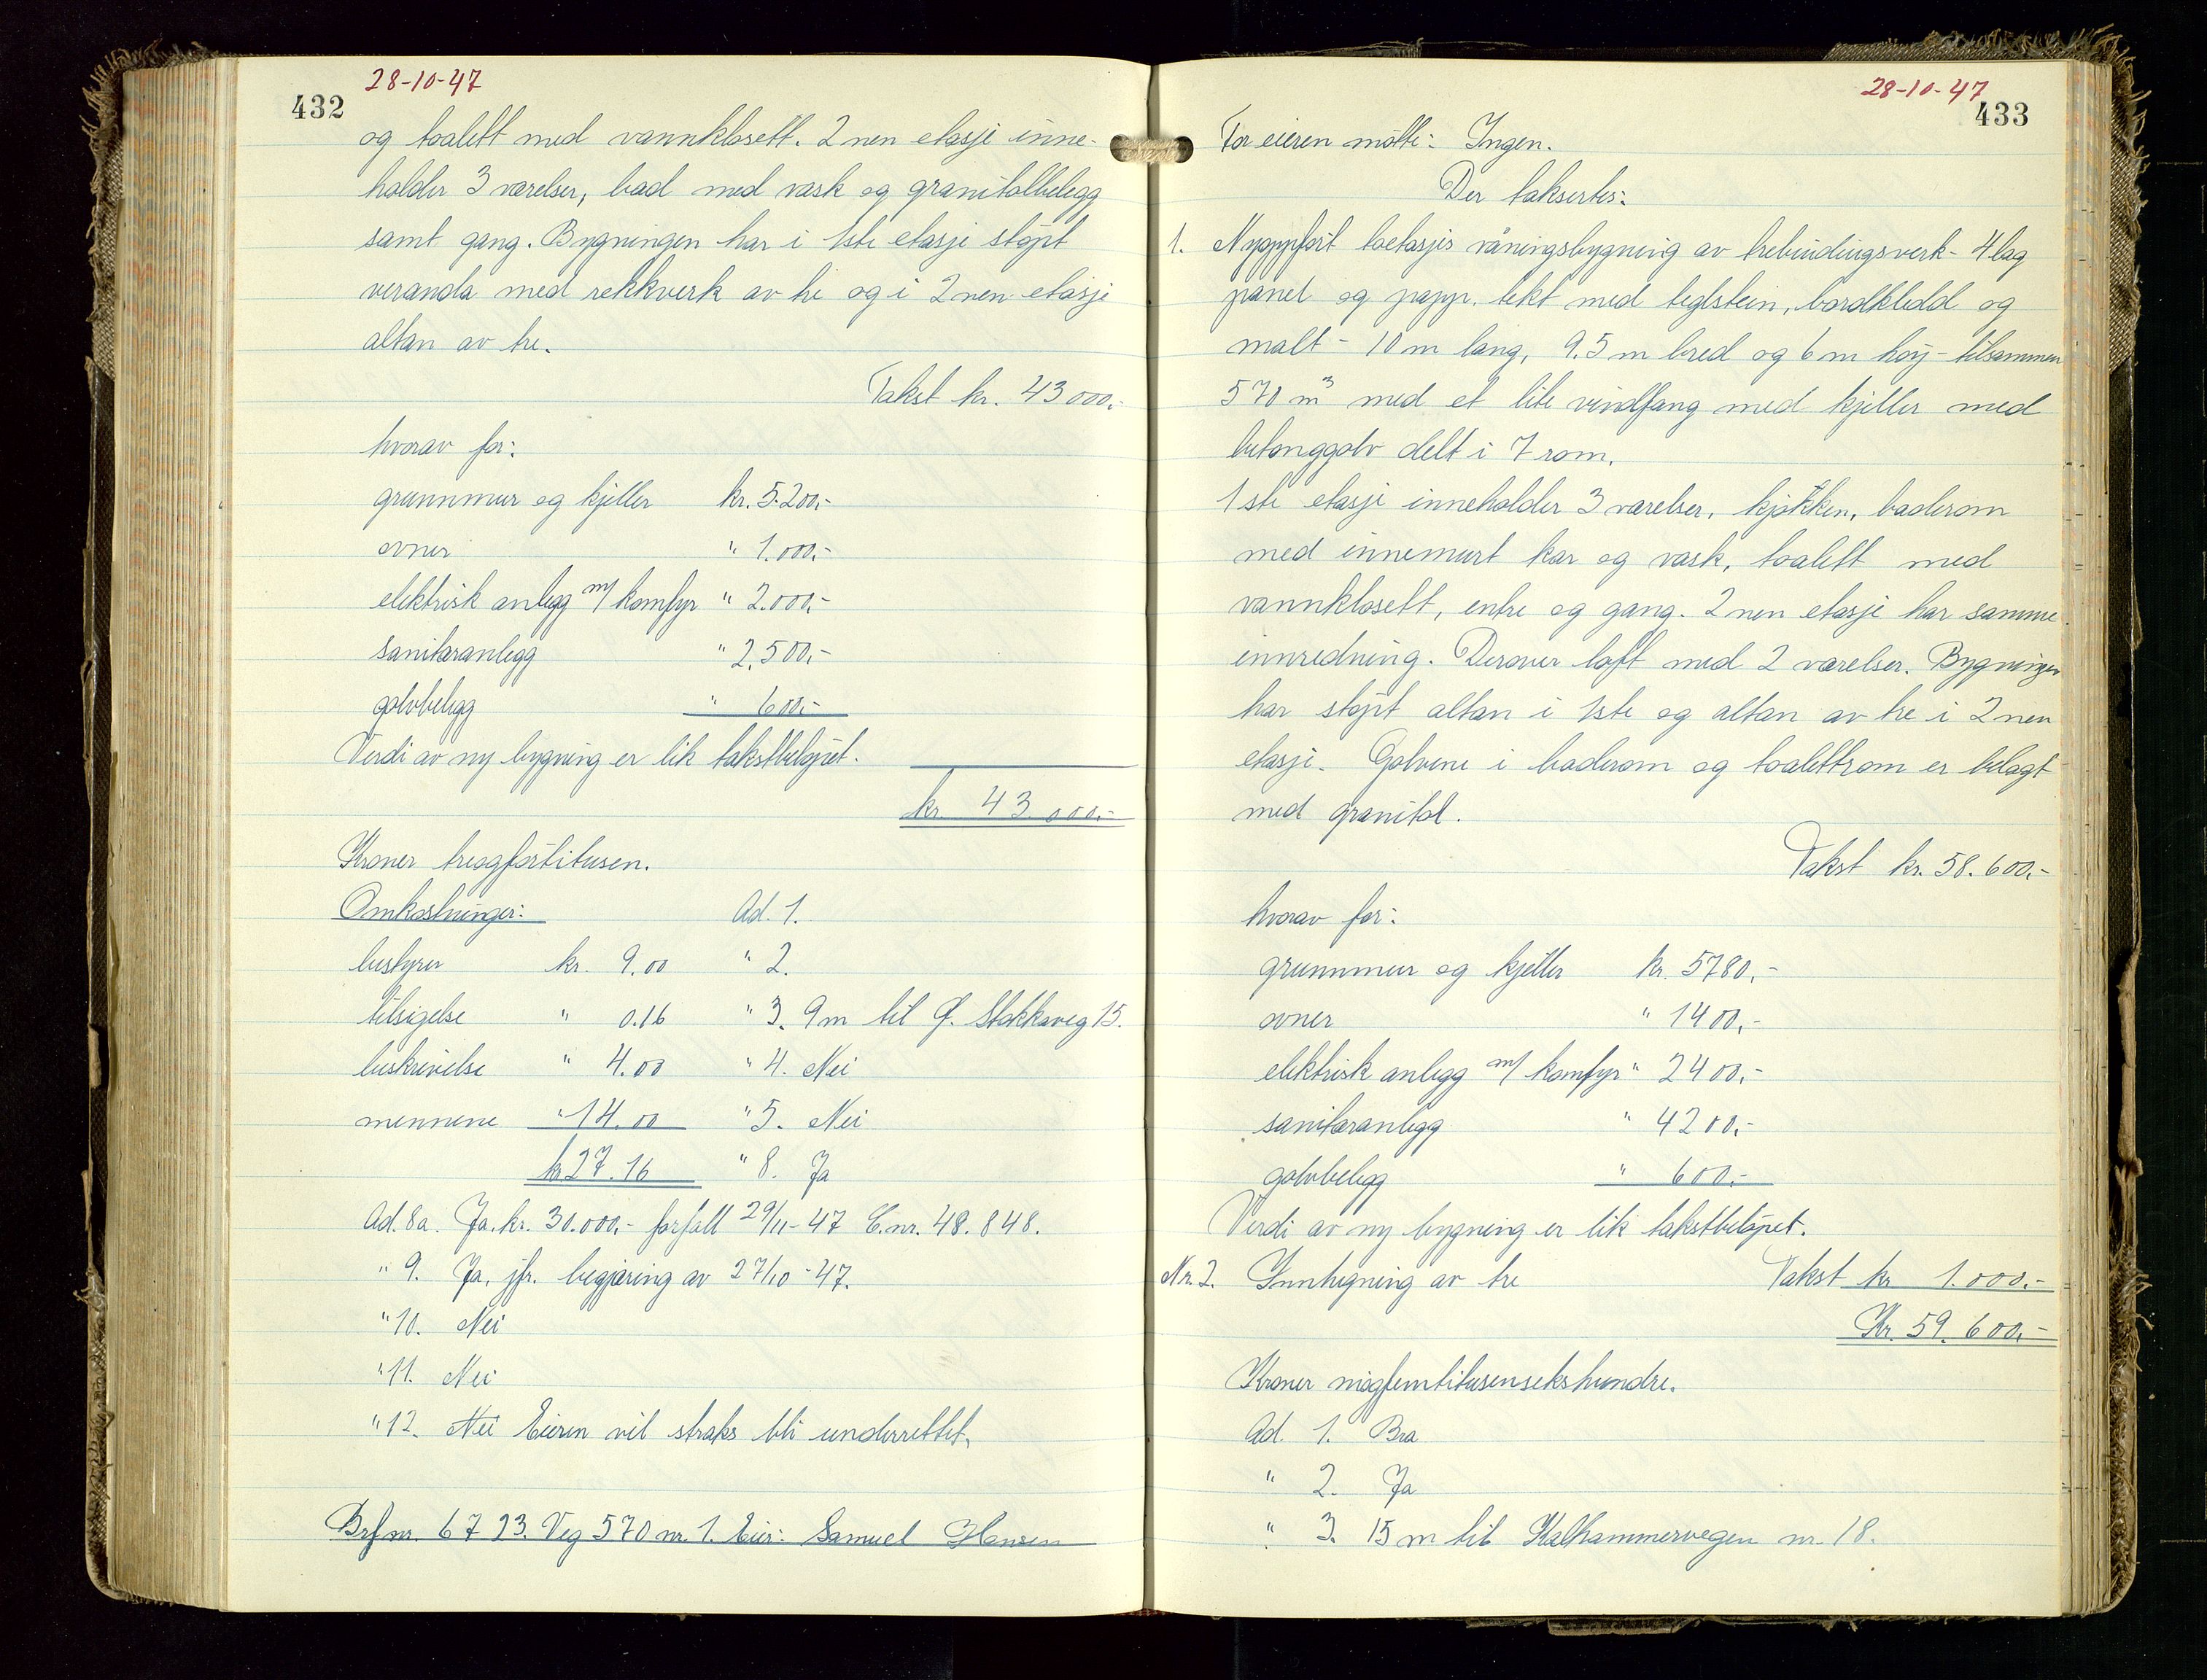 432
28-10-47
og toalett med vannklosett. 2 nen etasje inne-
holder 3 værelser, bad med vask og granitolbelegg
samt gang. Bygningen har i 1ste etasje støpt
veranda med rekkverk av tre og i 2 nen etasje
altan av tre.
Takst kr. 43 000,-
hvorav for:
grunnmur og kjeller kr. 5.200,-
ovner " 1.000,-
elektrisk anlegg m/ komfyr " 2.000,-
sanitæranlegg " 2.500,-
golvbelegg " 600,-
Verdi av ny bygning er lik takstbeløpet.
kr. 43 000,-
Kroner treogførtitusen.
Omkostninger: Ad. 1.
bestyrer kr. 9.00 " 2.
tilsigelse " 0.16 " 3. 9 m til Ø. Stokkaveg 15.
beskrivelse " 4.00 " 4. Nei
mennene " 14.00 " 5. Nei
kr 27.16 " 8. Ja
Ad. 8a. Ja. kr. 30.000,- forfall 29/11-47 C.nr. 48.848.
" 9. Ja, jfr. begjæring av 27/10-47.
" 10. Nei
" 11. Nei
" 12. Nei Eieren vil straks bli underrettet.
Brf nr. 6793. Veg 570 nr. 1. Eier: Samuel Hansen
28-10-47
433
For eieren møtte: Ingen.
Der taksertes:
1. Nyoppført toetasjes våningsbygning av trebindingsverk - 4 lag
panel og papp. tekt med teglstein, bordkledd og
malt - 10 m lang, 9.5 m bred og 6 m høy - tilsammen
570 m³ med et lite vindfang med kjeller med
betonggolv delt i 7 rom.
1ste etasje inneholder 3 værelser, kjøkken, baderom
med innemurt kar og vask, toalett med
vannklosett, entre og gang. 2 nen etasje har samme
innredning. Derover loft med 2 værelser. Bygningen
har støpt altan i 1ste og altan av tre i 2 nen
etasje. Golvene i baderom og toalettrom er belagt
med granitol.
Takst kr. 58.600,-
hvorav for:
grunnmur og kjeller kr. 5780,-
ovner " 1400,-
elektrisk anlegg m/ komfyr " 2400,-
sanitæranlegg " 4200,-
golvbelegg " 600,-
Verdi av ny bygning er lik takstbeløpet.
Nr. 2. Innhegning av tre Takst kr 1.000,-
Kr. 59.600,-
Kroner niogfemtitusensekshundre.
Ad. 1. Bra
" 2. Ja
" 3. 15 m til Kalhammervegen nr. 18.